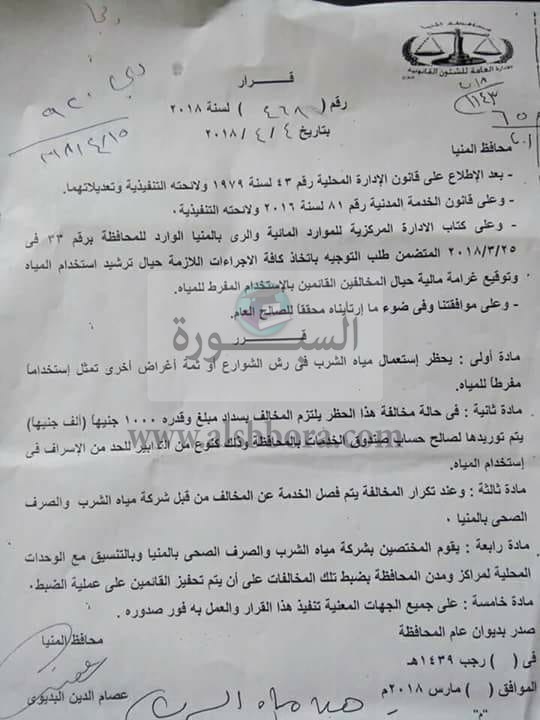 محافظة المنيا
الإدارة العامة للشئون القانونية
قرار
رقم ( ٤٦٨ ) لسنة ٢٠١٨
بتاريخ ٤ / ٤ / ٢٠١٨
محافظ المنيا
- بعد الإطلاع على قانون الإدارة المحلية رقم ٤٣ لسنة ١٩٧٩ ولائحته التنفيذية وتعديلاتهما.
- وعلى قانون الخدمة المدنية رقم ٨١ لسنة ٢٠١٦ ولائحته التنفيذية ٠
- وعلى كتاب الادارة المركزية للموارد المائية والرى بالمنيا الوارد للمحافظة برقم ٣٣ فى
٢٠١٨/٣/٢٥ المتضمن طلب التوجيه بإتخاذ كافة الاجراءات اللازمة حيال ترشيد استخدام المياه
وتوقيع غرامة مالية حيال المخالفين القائمين بالإستخدام المفرط للمياه.
- وعلى موافقتنا وفى ضوء ما إرتأيناه محققاً للصالح العام.
السبورة
قرر
مادة أولى : يحظر إستعمال مياه الشرب فى رش الشوارع او ثمة أغراض أخرى تمثل إستخداماً
مفرطاً للمياه.
مادة ثانية : فى حالة مخالفة هذا الحظر يلتزم المخالف بسداد مبلغ وقدره ١٠٠٠ جنيهاً (ألف جنيهاً)
www.alsbbora.com
يتم توريدها لصالح حساب صندوق الخدمات بالمحافظة وذلك كنوع من التدابير للحد من الإسراف فى
إستخدام المياه.
مادة ثالثة : وعند تكرار المخالفة يتم فصل الخدمة عن المخالف من قبل شركة مياه الشرب والصرف
الصحى بالمنيا ٠
مادة رابعة : يقوم المختصين بشركة مياه الشرب والصرف الصحى بالمنيا وبالتنسيق مع الوحدات
المحلية لمراكز ومدن المحافظة بضبط تلك المخالفات على أن يتم تحفيز القائمين على عملية الضبط٠
مادة خامسة : على جميع الجهات المعنية تنفيذ هذا القرار والعمل به فور صدوره .
صدر بديوان عام المحافظة
محافظ المنيا
فى ( ) رجب ١٤٣٩هـ
الموافق ( ) مارس ٢٠١٨م
عصام الدين البديوى